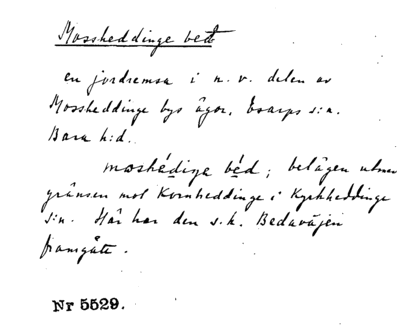 Mossheddinge bett
en jordremsa i n. v. delen av
Mossheddinge bys ägor, Esarps s:n.
Bara h:d.
moshédiŋe béd; belägen utmed
gränsen mot Kornheddinge i Kyrkheddinge
s:n. Här har den s.k. Bedavägen
framgått.
Nr 5529.